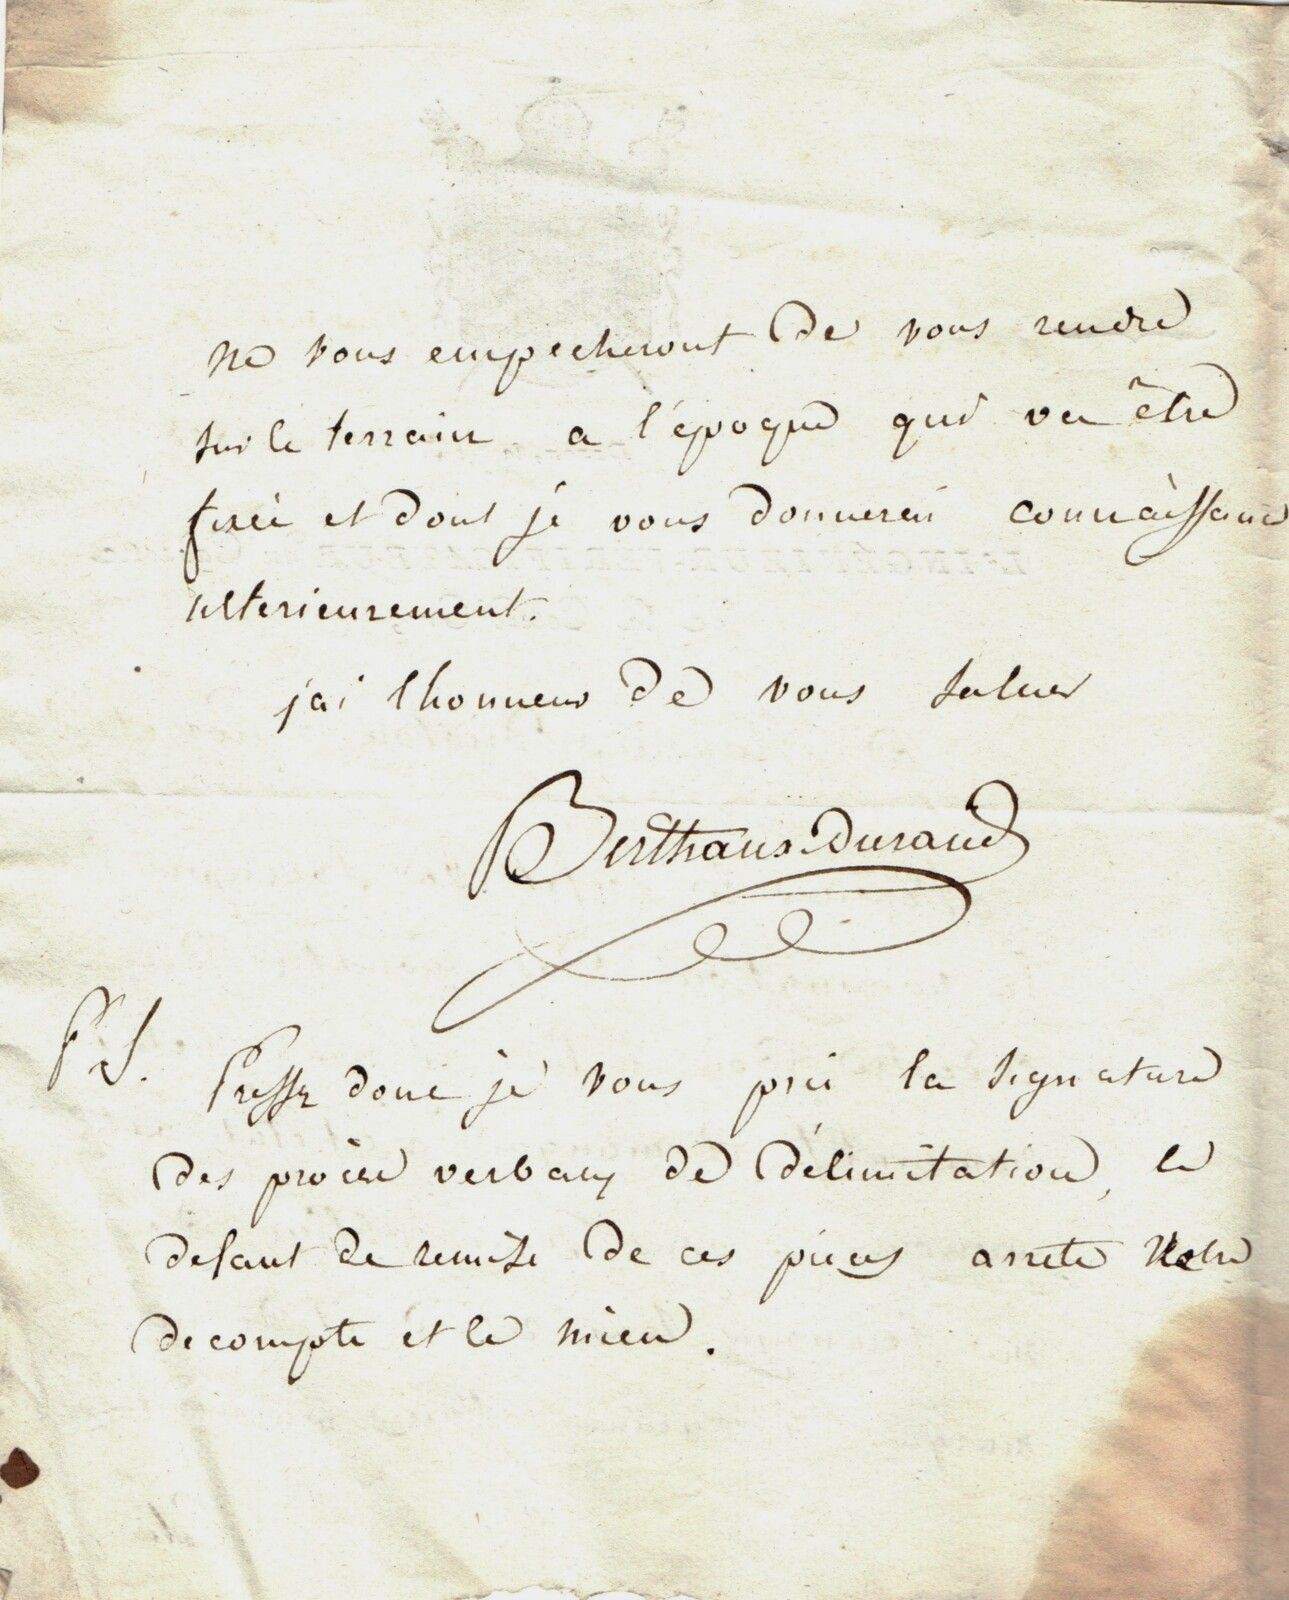 ne vous empecheront de vous rendre
sur le terrain a l'époque qui va être
fixée et dont je vous donnerai connaissance
ulterieurement.
j'ai lhonneur de vous saluer
Berthaus-Durand
P.S. Pressez donc je vous prie la signature
des procès verbaux de délimitation, le
defaut de remise de ces pieces arrete votre
decompte et le mien.